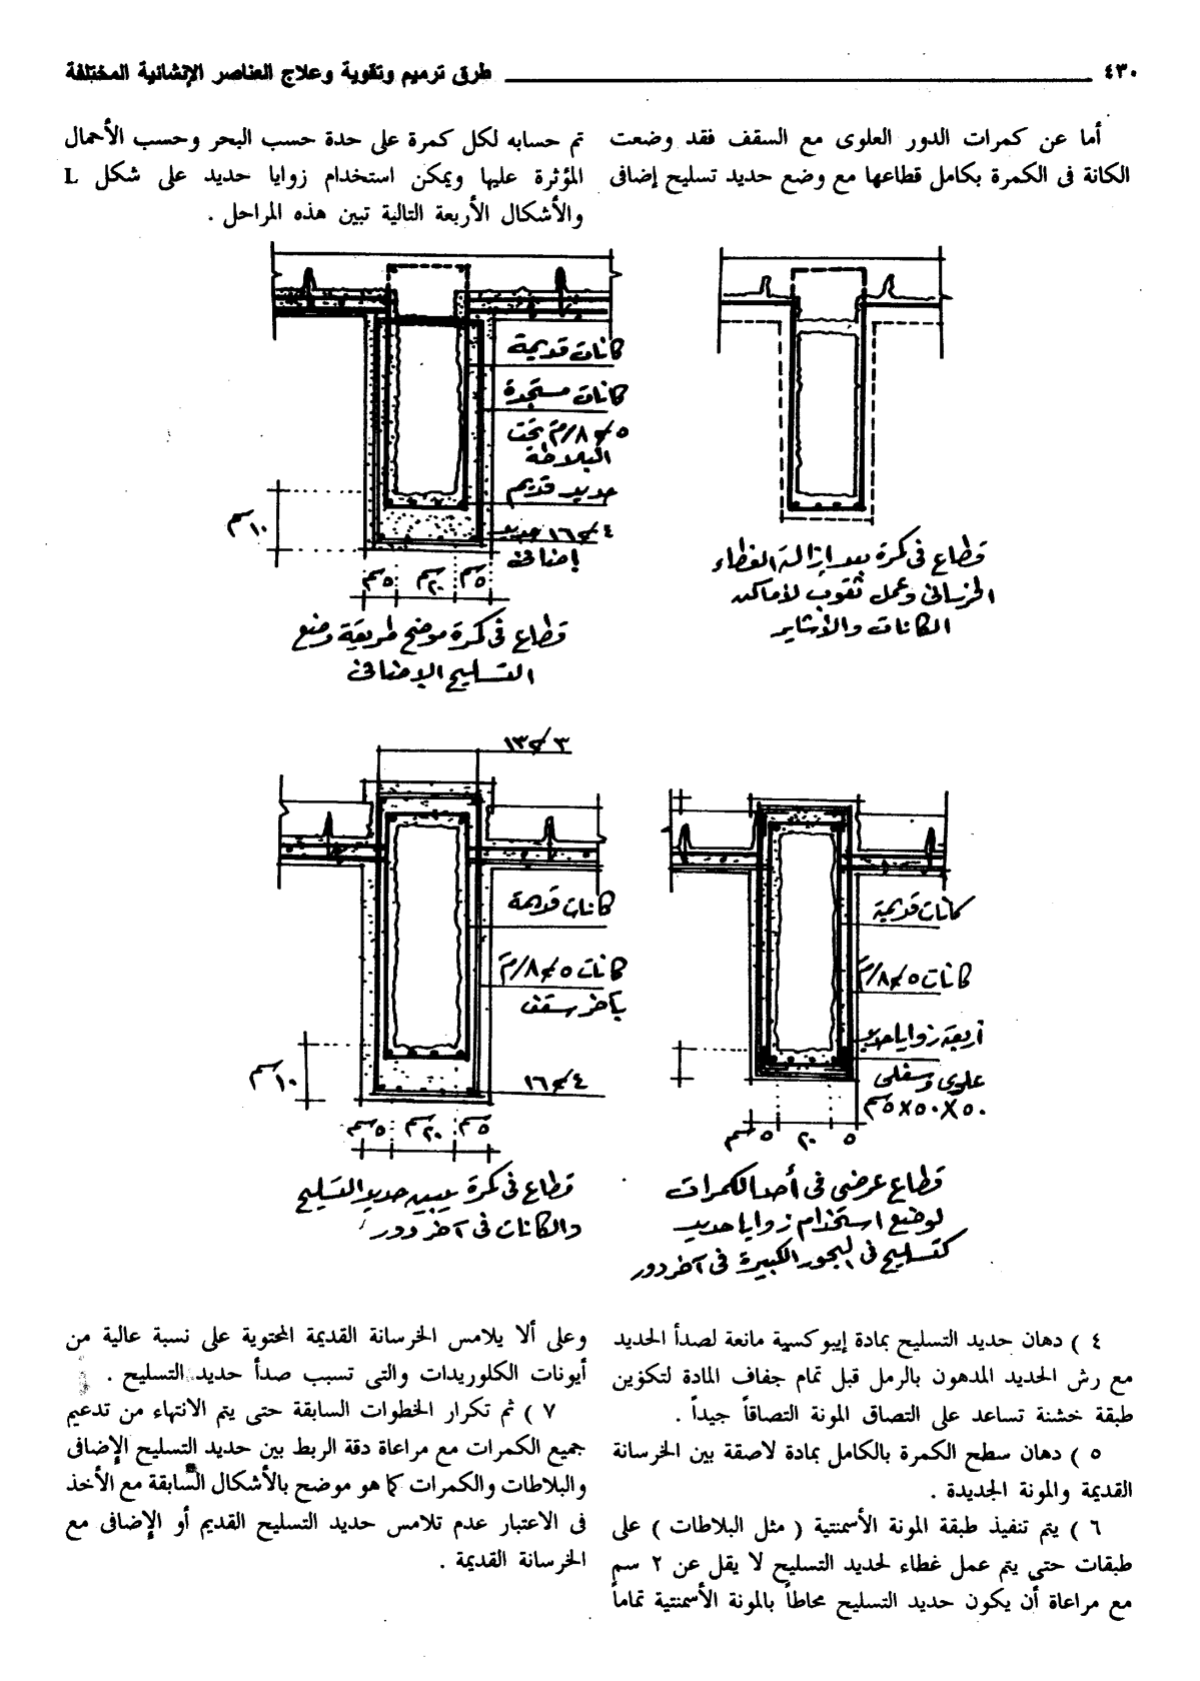 ٤٣٠
طرق ترميم وتقوية وعلاج العناصر الإنشائية المختلفة
أما عن كمرات الدور العلوى مع السقف فقد وضعت
الكانة فى الكمرة بكامل قطاعها مع وضع حديد تسليح إضافى
تم حسابه لكل كمرة على حدة حسب البحر وحسب الأحمال
المؤثرة عليها ويمكن استخدام زوايا حديد على شكل L
والأشكال الأربعة التالية تبين هذه المراحل .
قطاع فى كمرة بعد إزالة الغطاء
الخرسانى وعمل ثقوب لأماكن
الكانات والأشاير
كانات قديمة
كانات مستجدة
٥ ϕ ٨/م تحت
البلاطة
حديد قديم
٤ ϕ ١٦ حديد
إضافى
١٠ سم
٥ سم ٢٠ سم ٥ سم
قطاع فى كمرة موضح طريقة وضع
التسليح الإضافى
٣ ϕ ١٣
كانات قديمة
كانات ٥ ϕ ٨/م
بآخر سقف
٤ ϕ ١٦
١٠ سم
٥ سم ٢٠ سم ٥ سم
قطاع فى كمرة يبين حديد التسليح
والكانات فى آخر دور
كانات قديمة
كانات ٥ ϕ ٨/م
أربعة زوايا حديد
علوى وسفلى
٥٠ X ٥٠ X ٥ سم
٥ سم ٢٠ ٥
قطاع عرضى فى أحد الكمرات
لوضع استخدام زوايا حديد
كتسليح فى البحور الكبيرة فى آخر دور
٤ ) دهان حديد التسليح بمادة إيبوكسية مانعة لصدأ الحديد
مع رش الحديد المدهون بالرمل قبل تمام جفاف المادة لتكوين
طبقة خشنة تساعد على التصاق المونة التصاقاً جيداً .
٥ ) دهان سطح الكمرة بالكامل بمادة لاصقة بين الخرسانة
القديمة والمونة الجديدة .
٦ ) يتم تنفيذ طبقة المونة الأسمنتية ( مثل البلاطات ) على
طبقات حتى يتم عمل غطاء لحديد التسليح لا يقل عن ٢ سم
مع مراعاة أن يكون حديد التسليح محاطاً بالمونة الأسمنتية تماماً
وعلى ألا يلامس الخرسانة القديمة المحتوية على نسبة عالية من
أيونات الكلوريدات والتى تسبب صدأ حديد التسليح .
٧ ) ثم تكرار الخطوات السابقة حتى يتم الانتهاء من تدعيم
جميع الكمرات مع مراعاة دقة الربط بين حديد التسليح الإضافى
والبلاطات والكمرات كما هو موضح بالأشكال السابقة مع الأخذ
فى الاعتبار عدم تلامس حديد التسليح القديم أو الإضافى مع
الخرسانة القديمة .